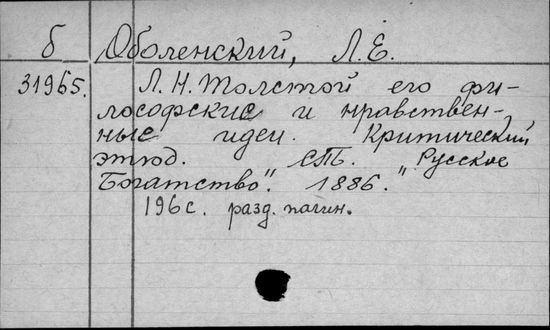 б Оболенский, Л.Е.
31965. Л.Н. Толстой его фи-
лософские и нравствен-
ные идеи. Критический
этюд. СПб. "Русское
Богатство". 1886.
196 с. разд. пагин.